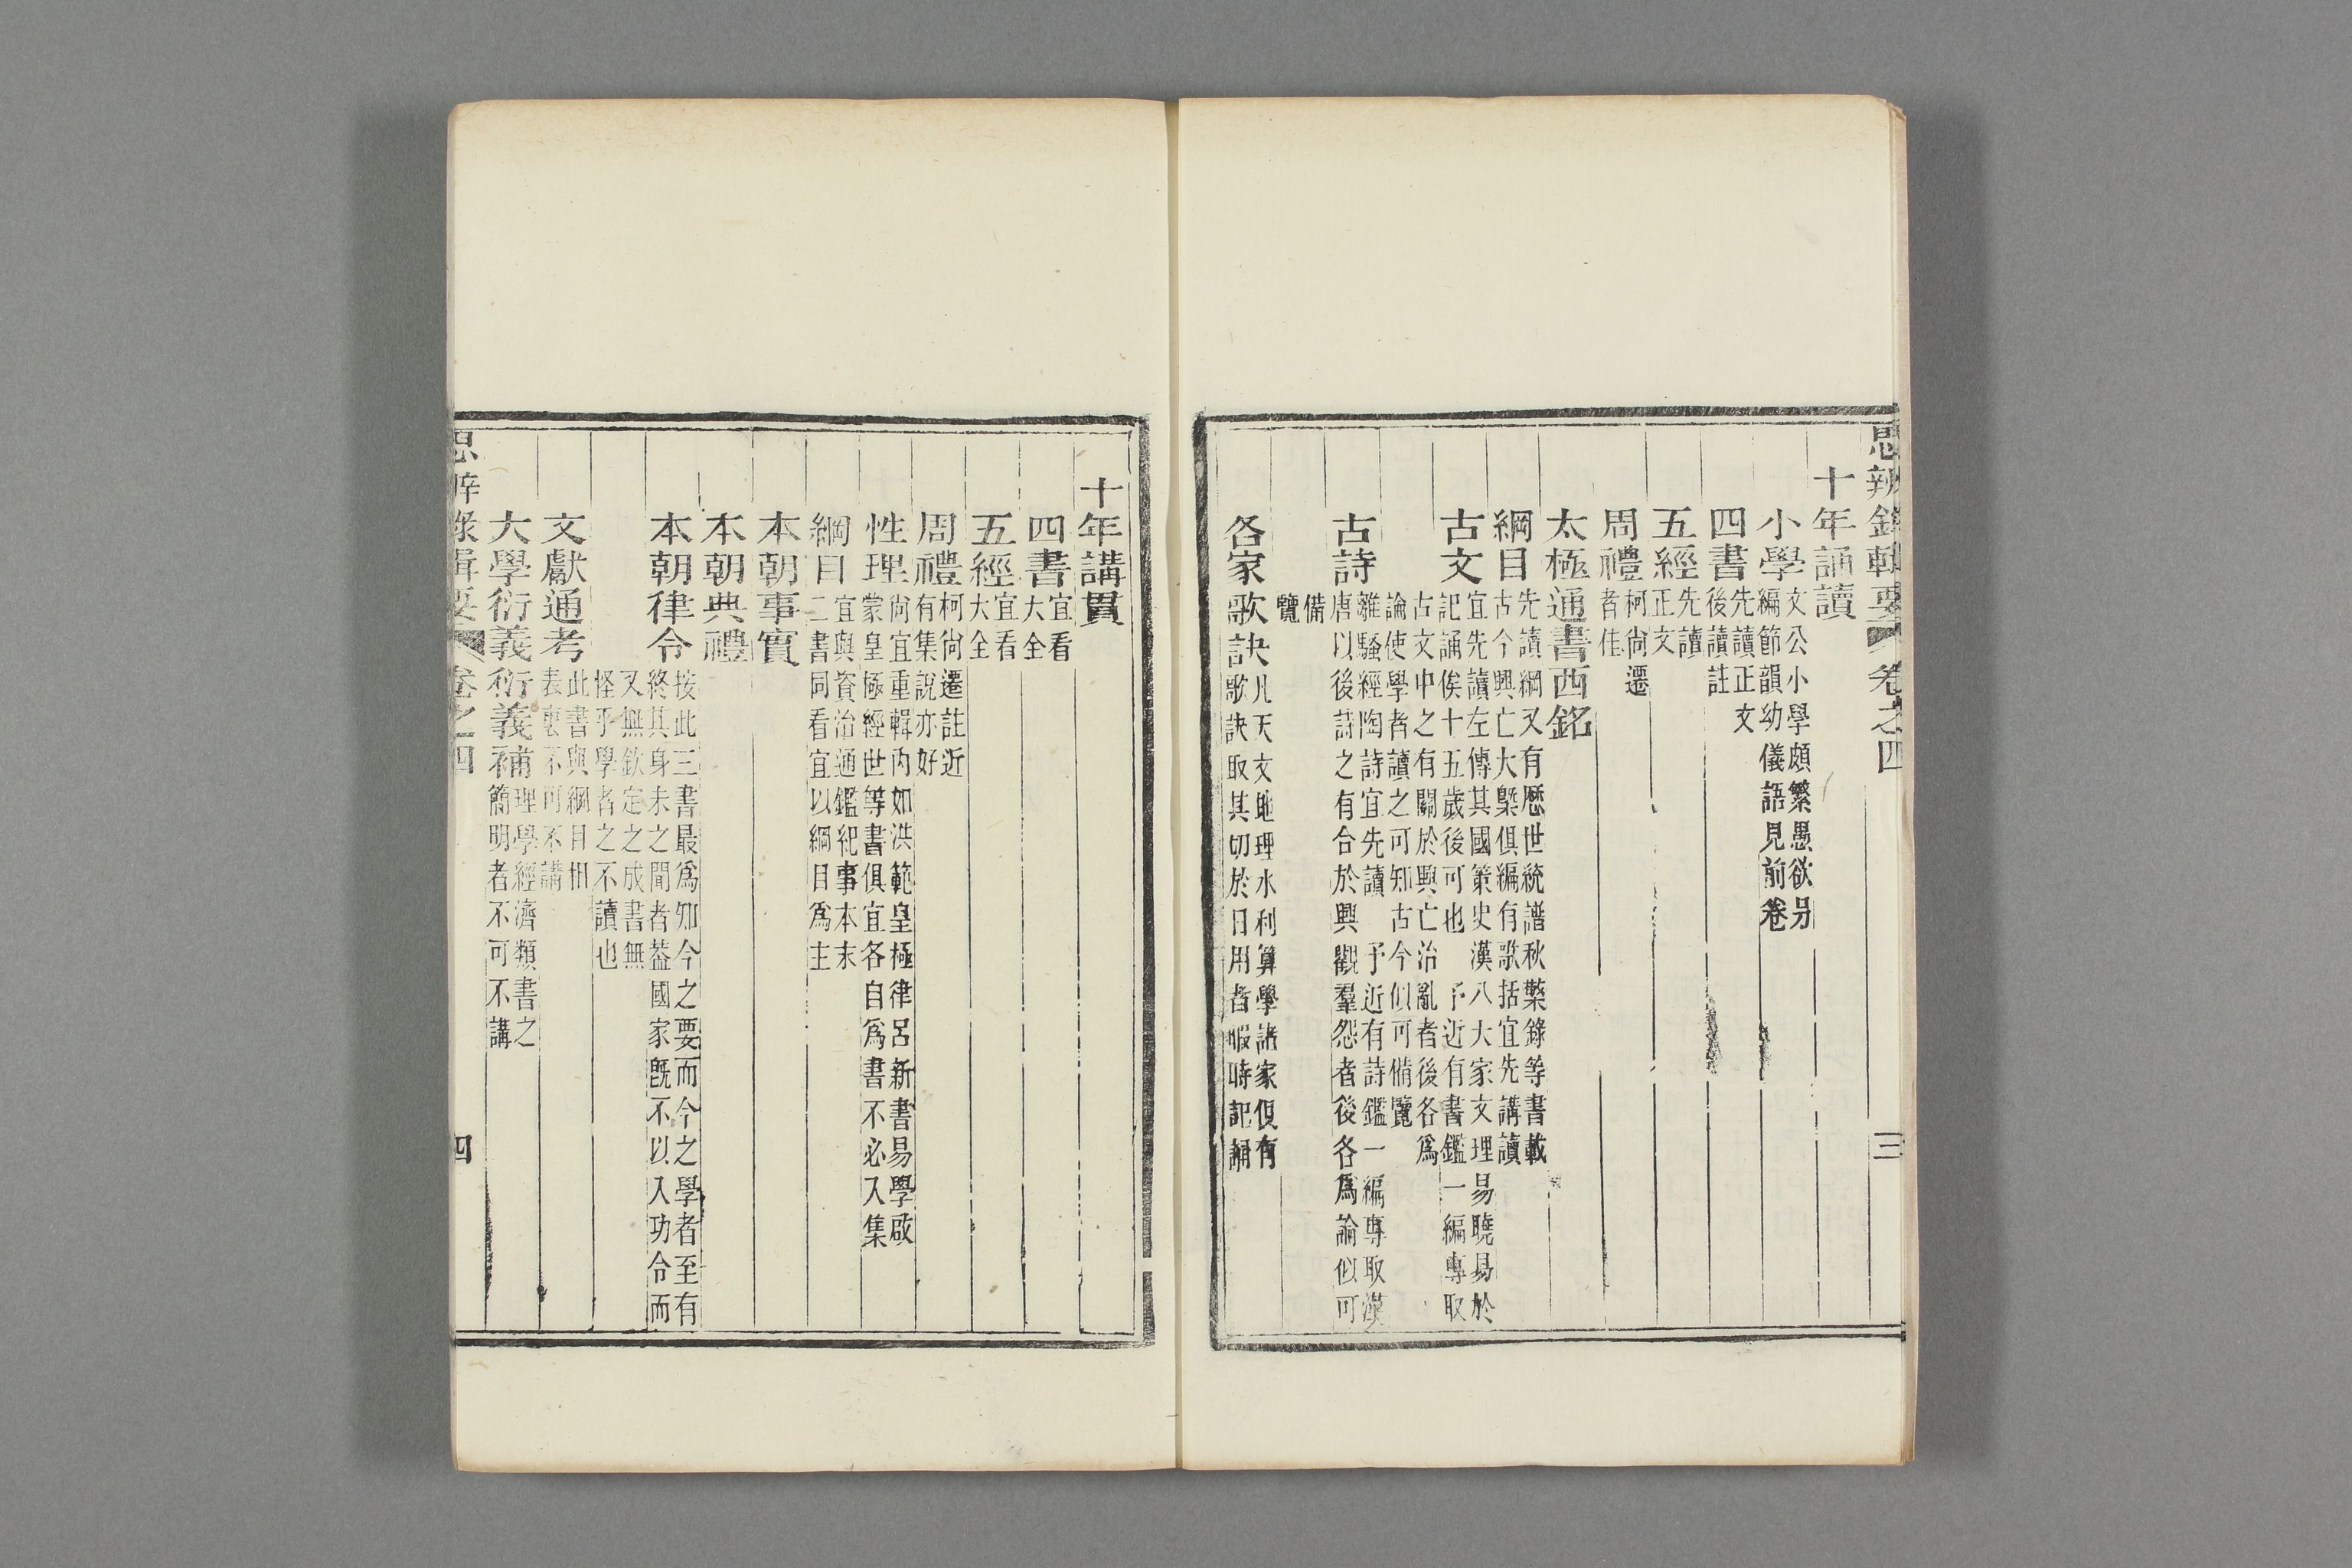 思辨錄輯要 卷之四 三
十年誦讀
小學文公小學頗繁愚欲另
編節韻幼儀語見前卷
四書先讀正文
後讀註
五經先讀
正文
周禮柯尚遷
者佳
太極通書西銘
綱目先讀綱又有歷世統譜秋檠錄等書載
古今興亡大槩俱編有歌括宜先講讀
古文宜先讀左傳其國策史漢八大家文理易曉易於
記誦俟十五歲後可也 予近有書鑑一編專取
古文中之有關於興亡治亂者後各爲
論使學者讀之可知古今似可備覽
古詩離騷經陶詩宜先讀 予近有詩鑑一編專取漢
唐以後詩之有合於興觀羣怨者後各爲論似可
備
覽
各家歌訣凡天文地理水利算學諸家俱有
歌訣取其切於日用者暇時記誦
十年講貫
四書宜看
大全
五經宜看
大全
周禮柯尚遷註近
有集說亦好
性理尚宜重輯內如洪範皇極律呂新書易學啟
蒙皇極經世等書俱宜各自爲書不必入集
綱目宜與資治通鑑紀事本末
二書同看宜以綱目爲主
本朝事實
本朝典禮
本朝律令按此三書最爲知今之要而今之學者至有
終其身未之聞者葢國家旣不以入功令而
又無欽定之成書無
怪乎學者之不讀也
文獻通考此書與綱目相
表裏不可不講
大學衍義衍義補理學經濟類書之
簡明者不可不講
思辨錄輯要 卷之四 四